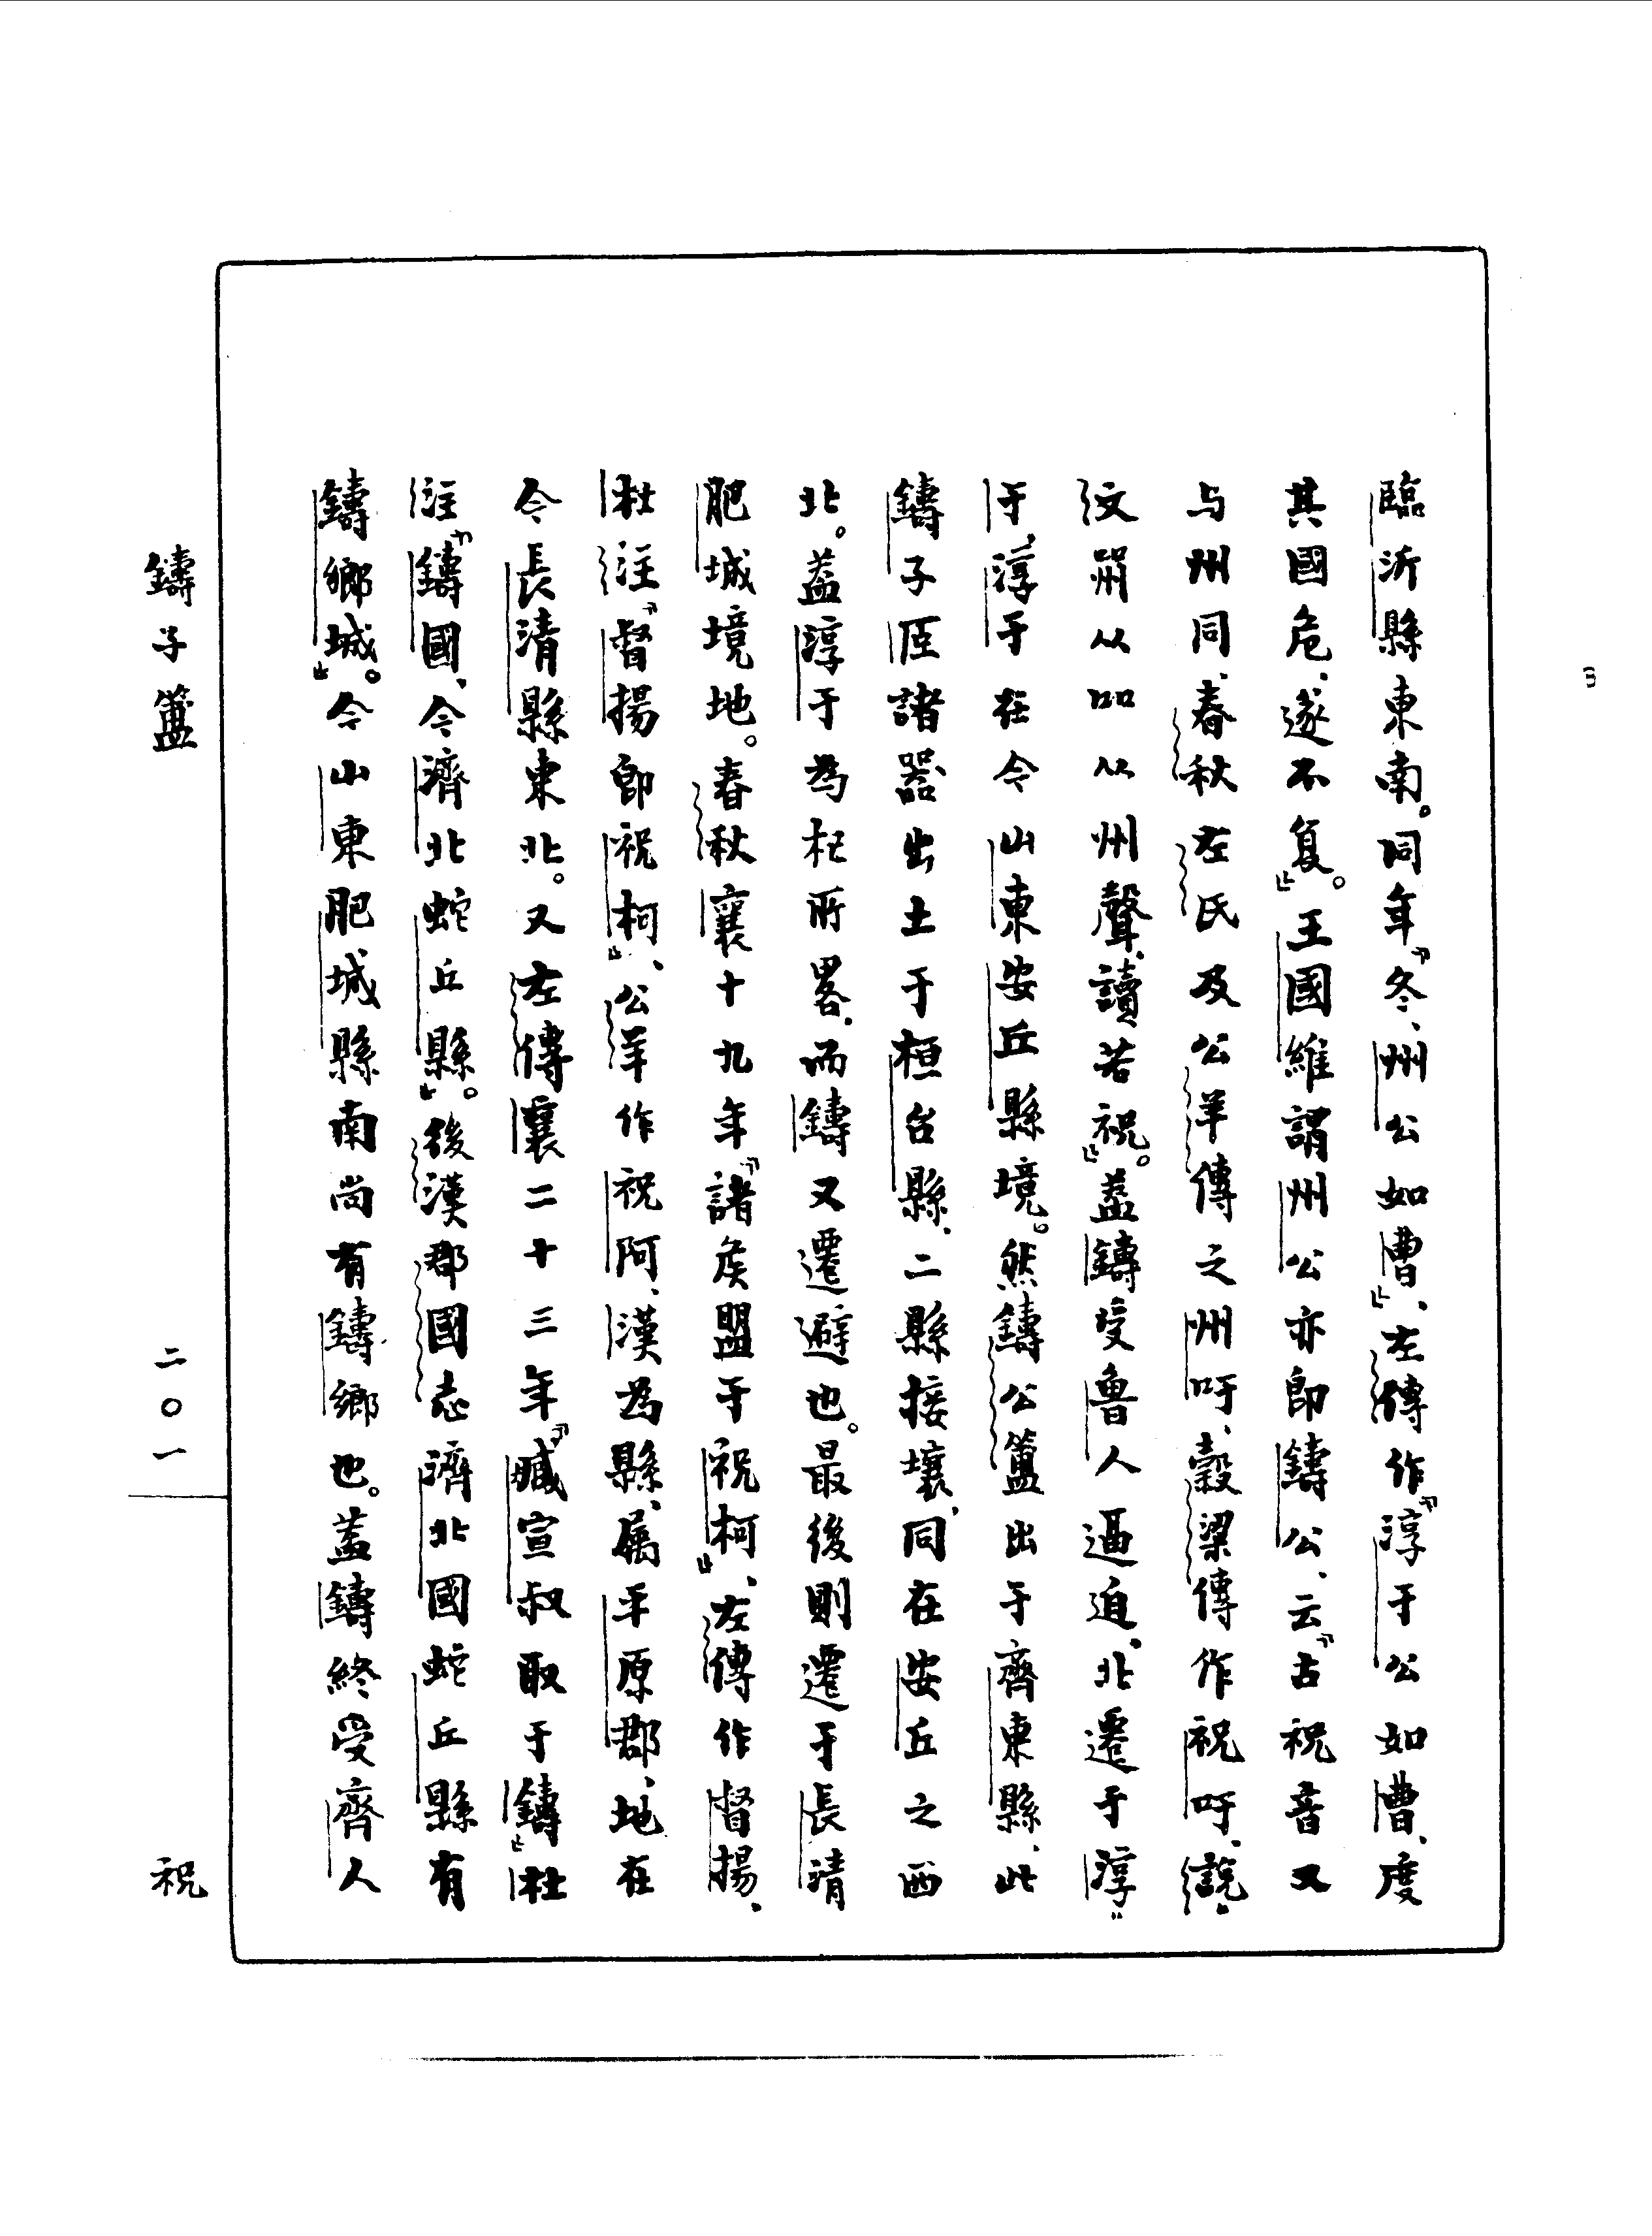 臨沂縣東南。同年『冬、州公如曹』、左傳作『淳于公如曹、度
其國危、遂不复』。王國維謂州公亦即鑄公、云『古祝音又
与州同、春秋左氏及公羊傳之州吁、穀梁傳作祝吁、說
文喌从吅从州聲、讀若祝』。葢鑄受魯人逼迫、北遷于淳
于、淳于在今山東安丘縣境。然鑄公簠出于齊東縣、此
鑄子𦣞諸器出土于桓台縣、二縣接壤、同在安丘之西
北。葢淳于為杞所畧、而鑄又遷避也。最後則遷于長清
肥城境地。春秋襄十九年『諸矦盟于祝柯』、左傳作督揚、
杜注『督揚即祝柯』、公羊作祝阿、漢為縣、屬平原郡、地在
今長清縣東北。又左傳襄二十三年『臧宣叔取于鑄』杜
注『鑄國、今濟北蛇丘縣』。後漢郡國志濟北國蛇丘縣有
鑄鄉城』。今山東肥城縣南尚有鑄鄉也。葢鑄終受齊人
鑄子簠
二〇一
祝